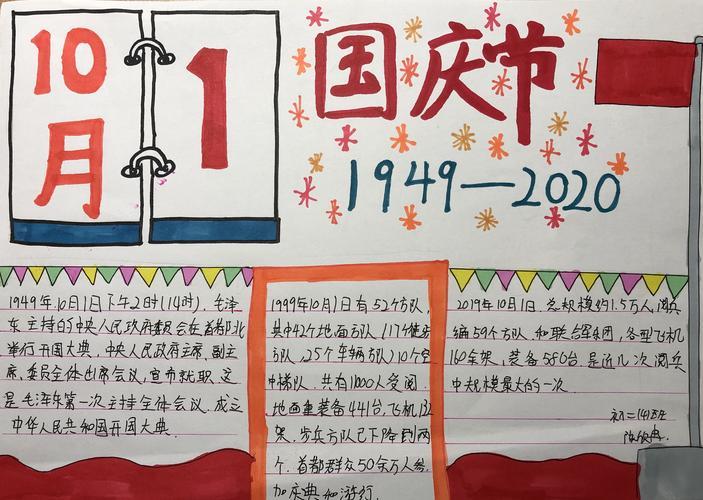 10
月
1
国庆节
1949—2020
1949年10月1日下午2时(14时),毛泽
东主持的中央人民政府委员会在首都北
举行开国大典.中央人民政府主席.副主
席.委员全体出席会议,宣布就职.这
是毛泽东第一次主持全体会议.成立
中华人民共和国开国大典.
1999年10月1日有52个方队,
其中42个地面方队(17个徒步
方队,25个车辆方队)10个空
中梯队.共有11000人受阅.
地面重装备441台,飞机132
架.步兵方队已下降到两
个.首都群众50余万人参
加庆典和游行.
2019年10月1日.总规模约1.5万人,阅兵
编59个方队和联合军乐团,各型飞机
160余架、装备580台.是近几次阅兵
中规模最大的一次.
初二(4)班
陈